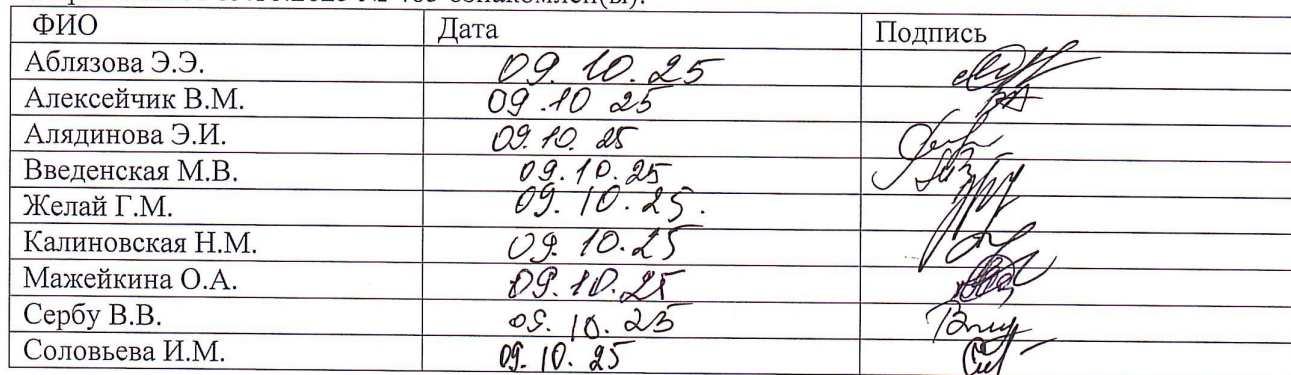 ознакомлен(ы).
ФИО Дата Подпись
Аблязова Э.Э. 09.10.25
Алексейчик В.М. 09.10 25
Алядинова Э.И. 09.10.25
Введенская М.В. 09.10.25
Желай Г.М. 09.10.25.
Калиновская Н.М. 09.10.25
Мажейкина О.А. 09.10.25
Сербу В.В. 09.10.25
Соловьева И.М. 09.10.25